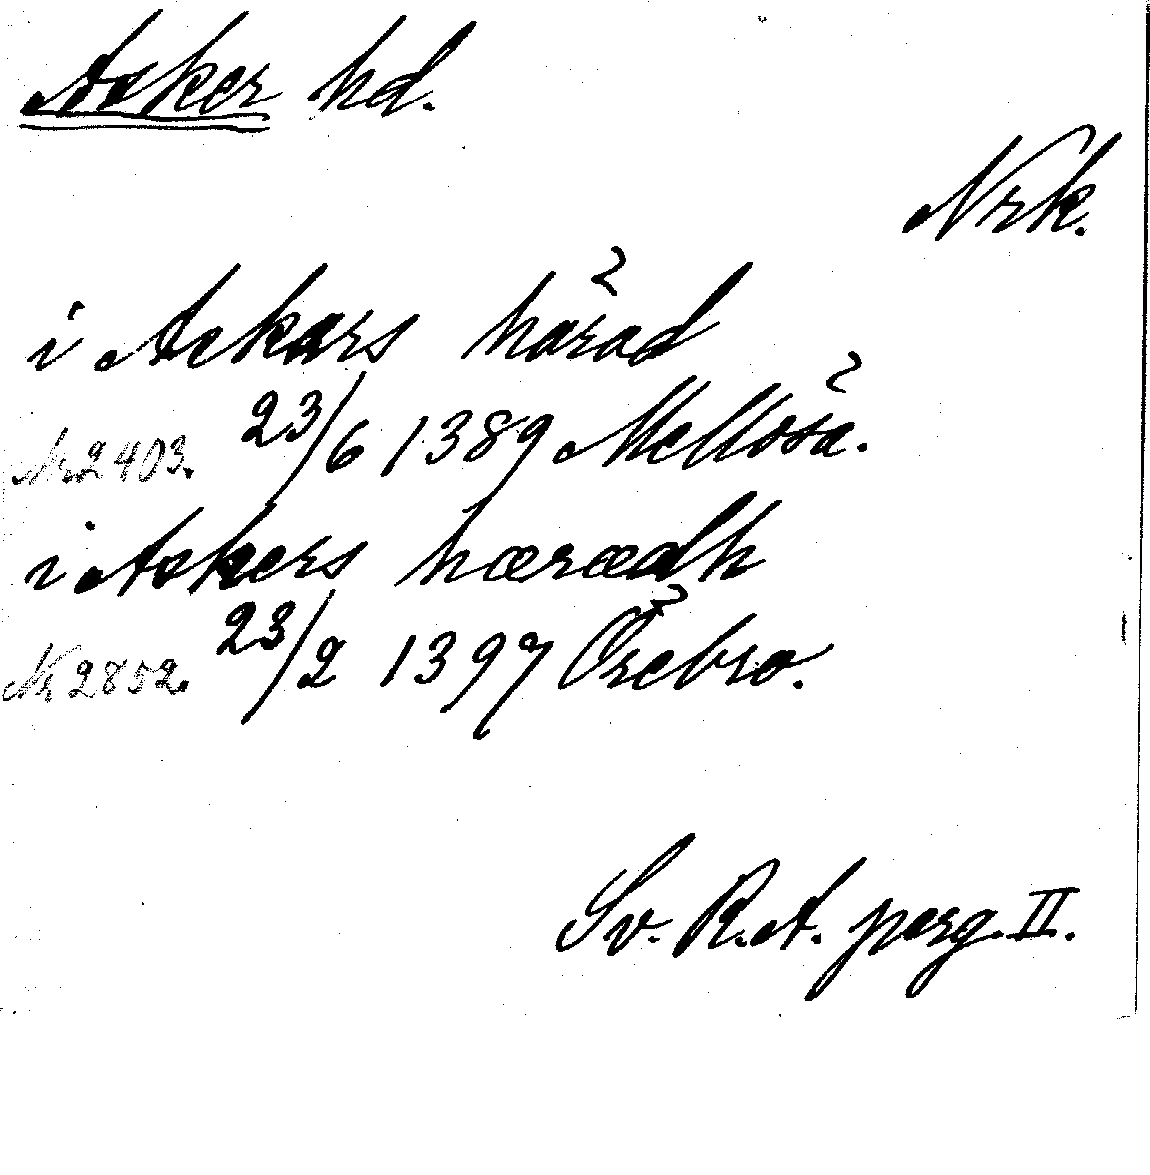 Asker hd.
Nrk.
i Askars härad
Nr 2403. 23/6 1389 Mellösa.
i Askers hærædh
Nr 2852. 23/2 1397 Örebro.
Sv. R.A. perg. II.